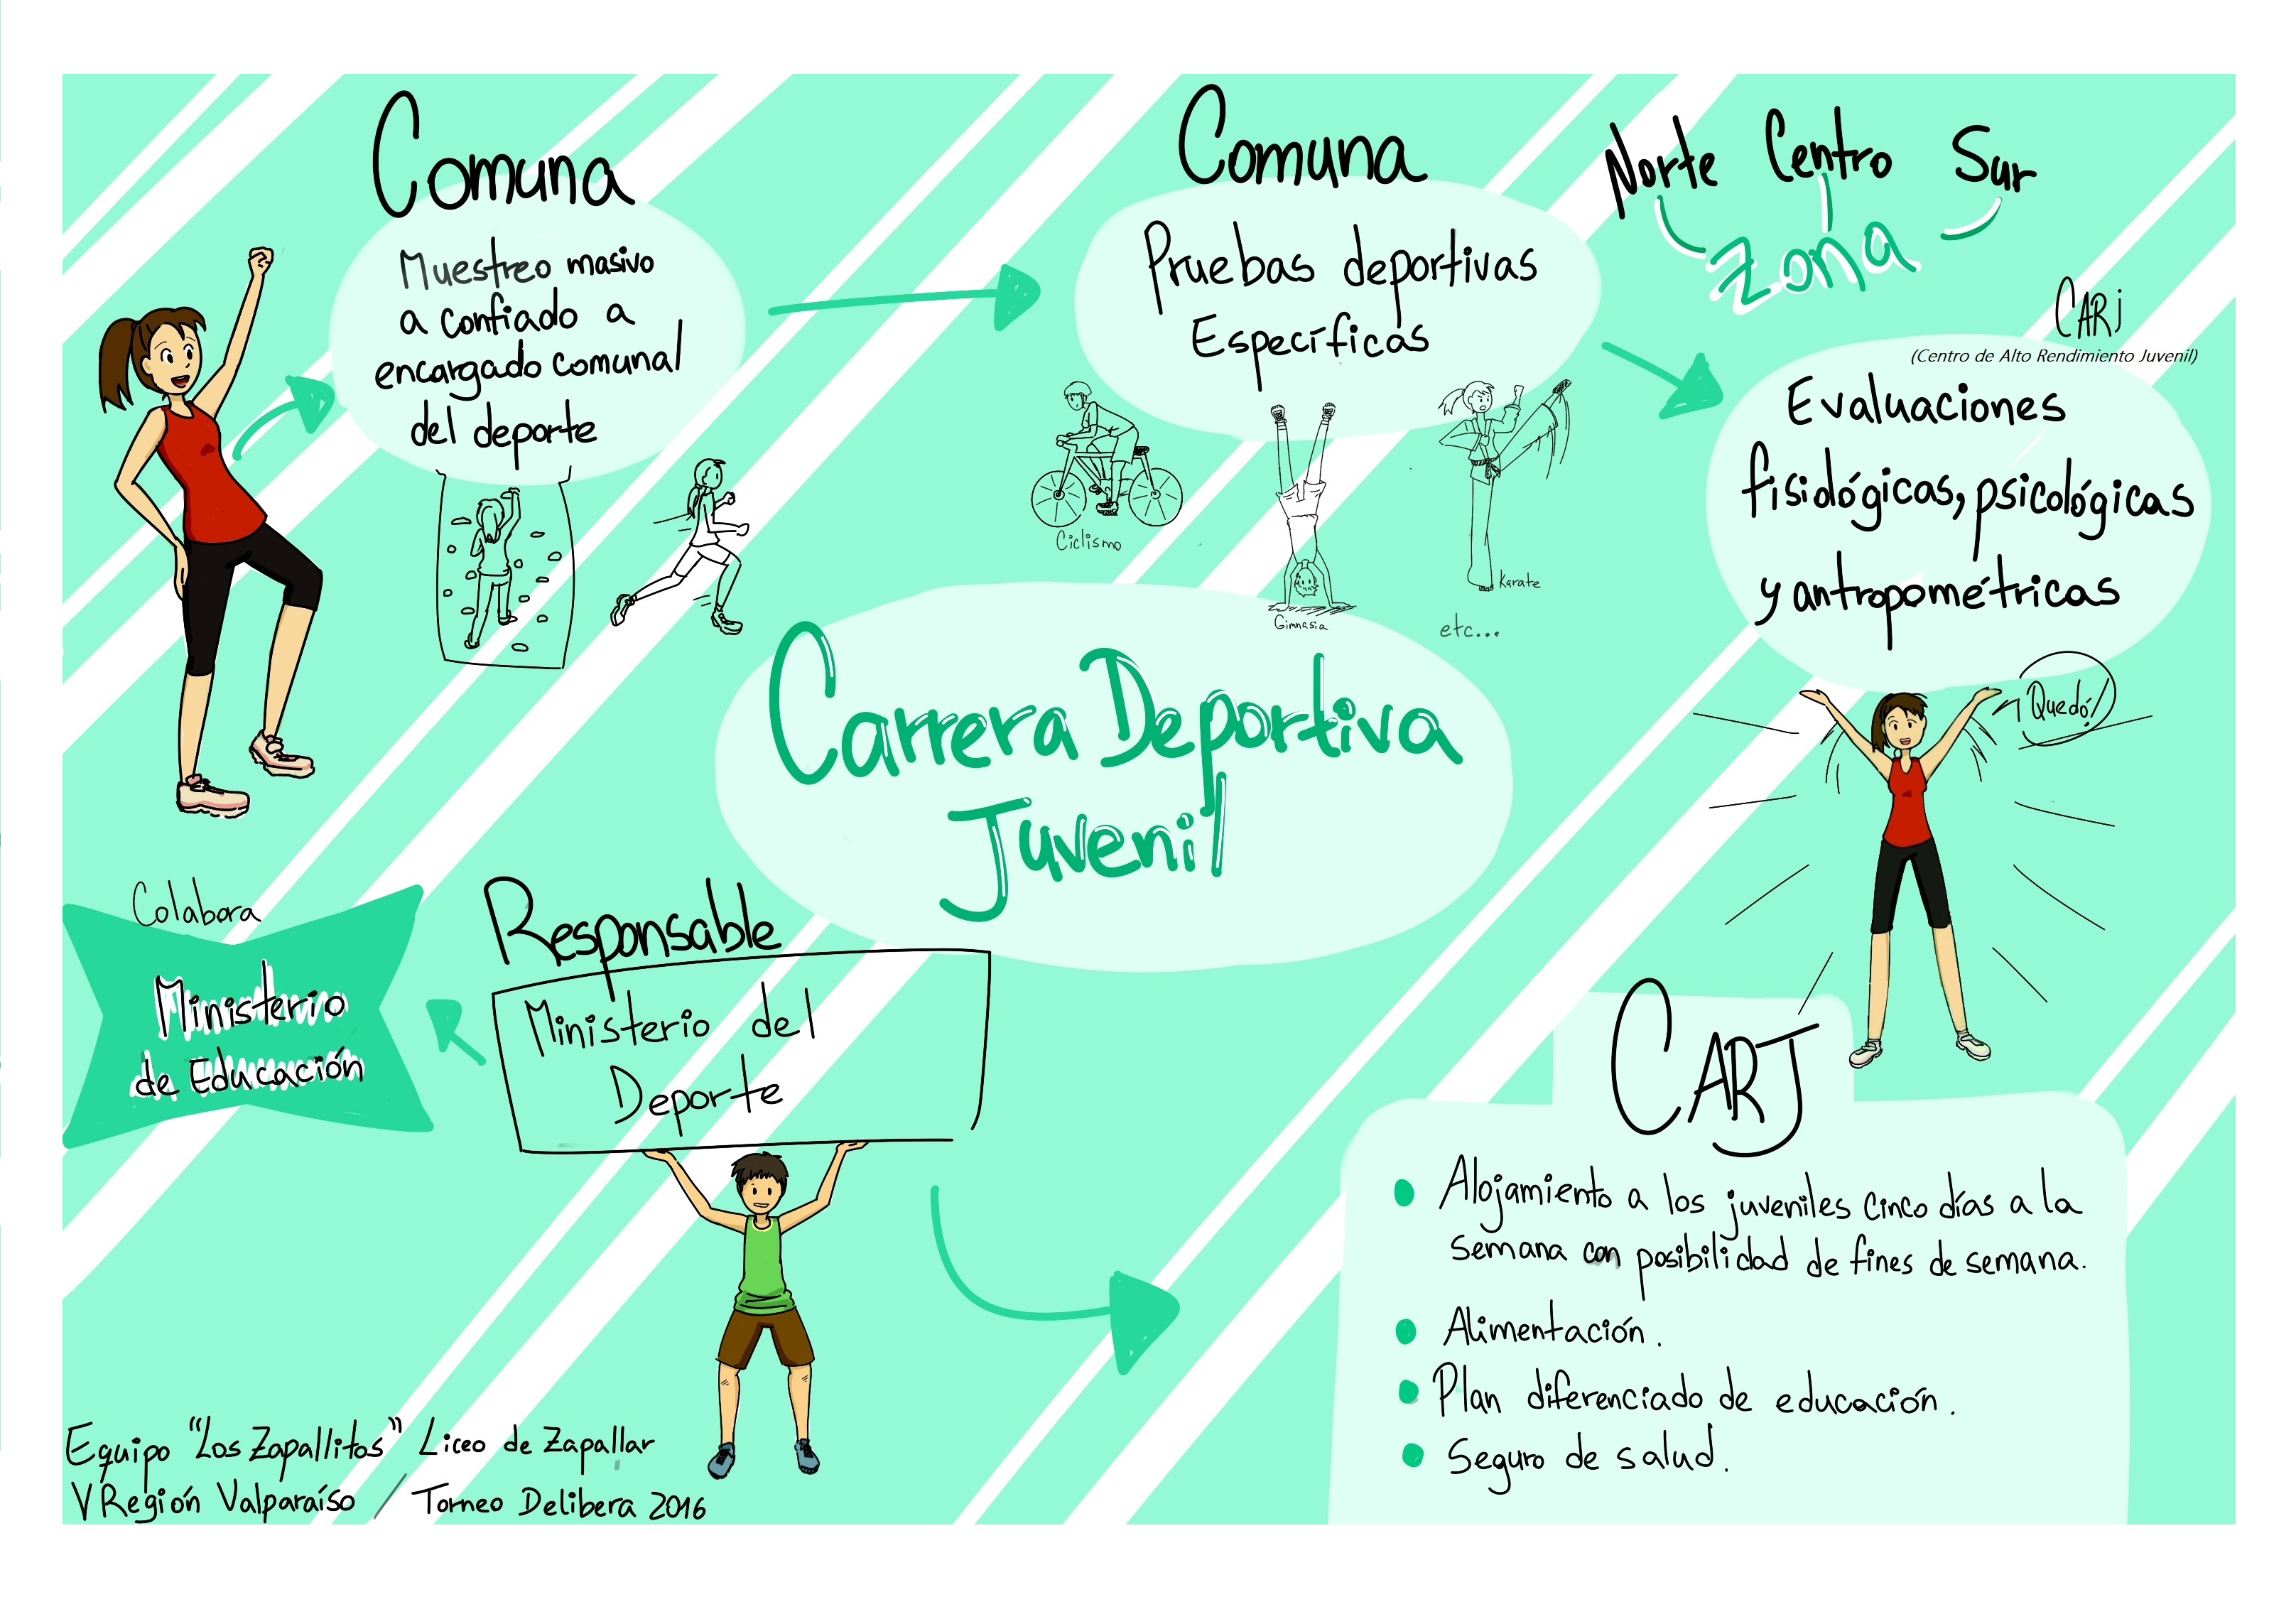 Comuna
Muestreo masivo
a confiado a
encargado comunal
del deporte
Comuna
Pruebas deportivas
Específicas
Ciclismo
Gimnasia
Karate
etc...
Norte Centro Sur
Zona
CARJ
(Centro de Alto Rendimiento Juvenil)
Evaluaciones
fisiológicas, psicológicas
y antropométricas
¡Quedó!
Carrera Deportiva
Juvenil
Colabora
Ministerio
de Educación
Responsable
Ministerio del
Deporte
CARJ
• Alojamiento a los juveniles cinco días a la
semana con posibilidad de fines de semana.
• Alimentación.
• Plan diferenciado de educación.
• Seguro de salud.
Equipo "Los Zapallitos" Liceo de Zapallar
V Región Valparaíso / Torneo Delibera 2016